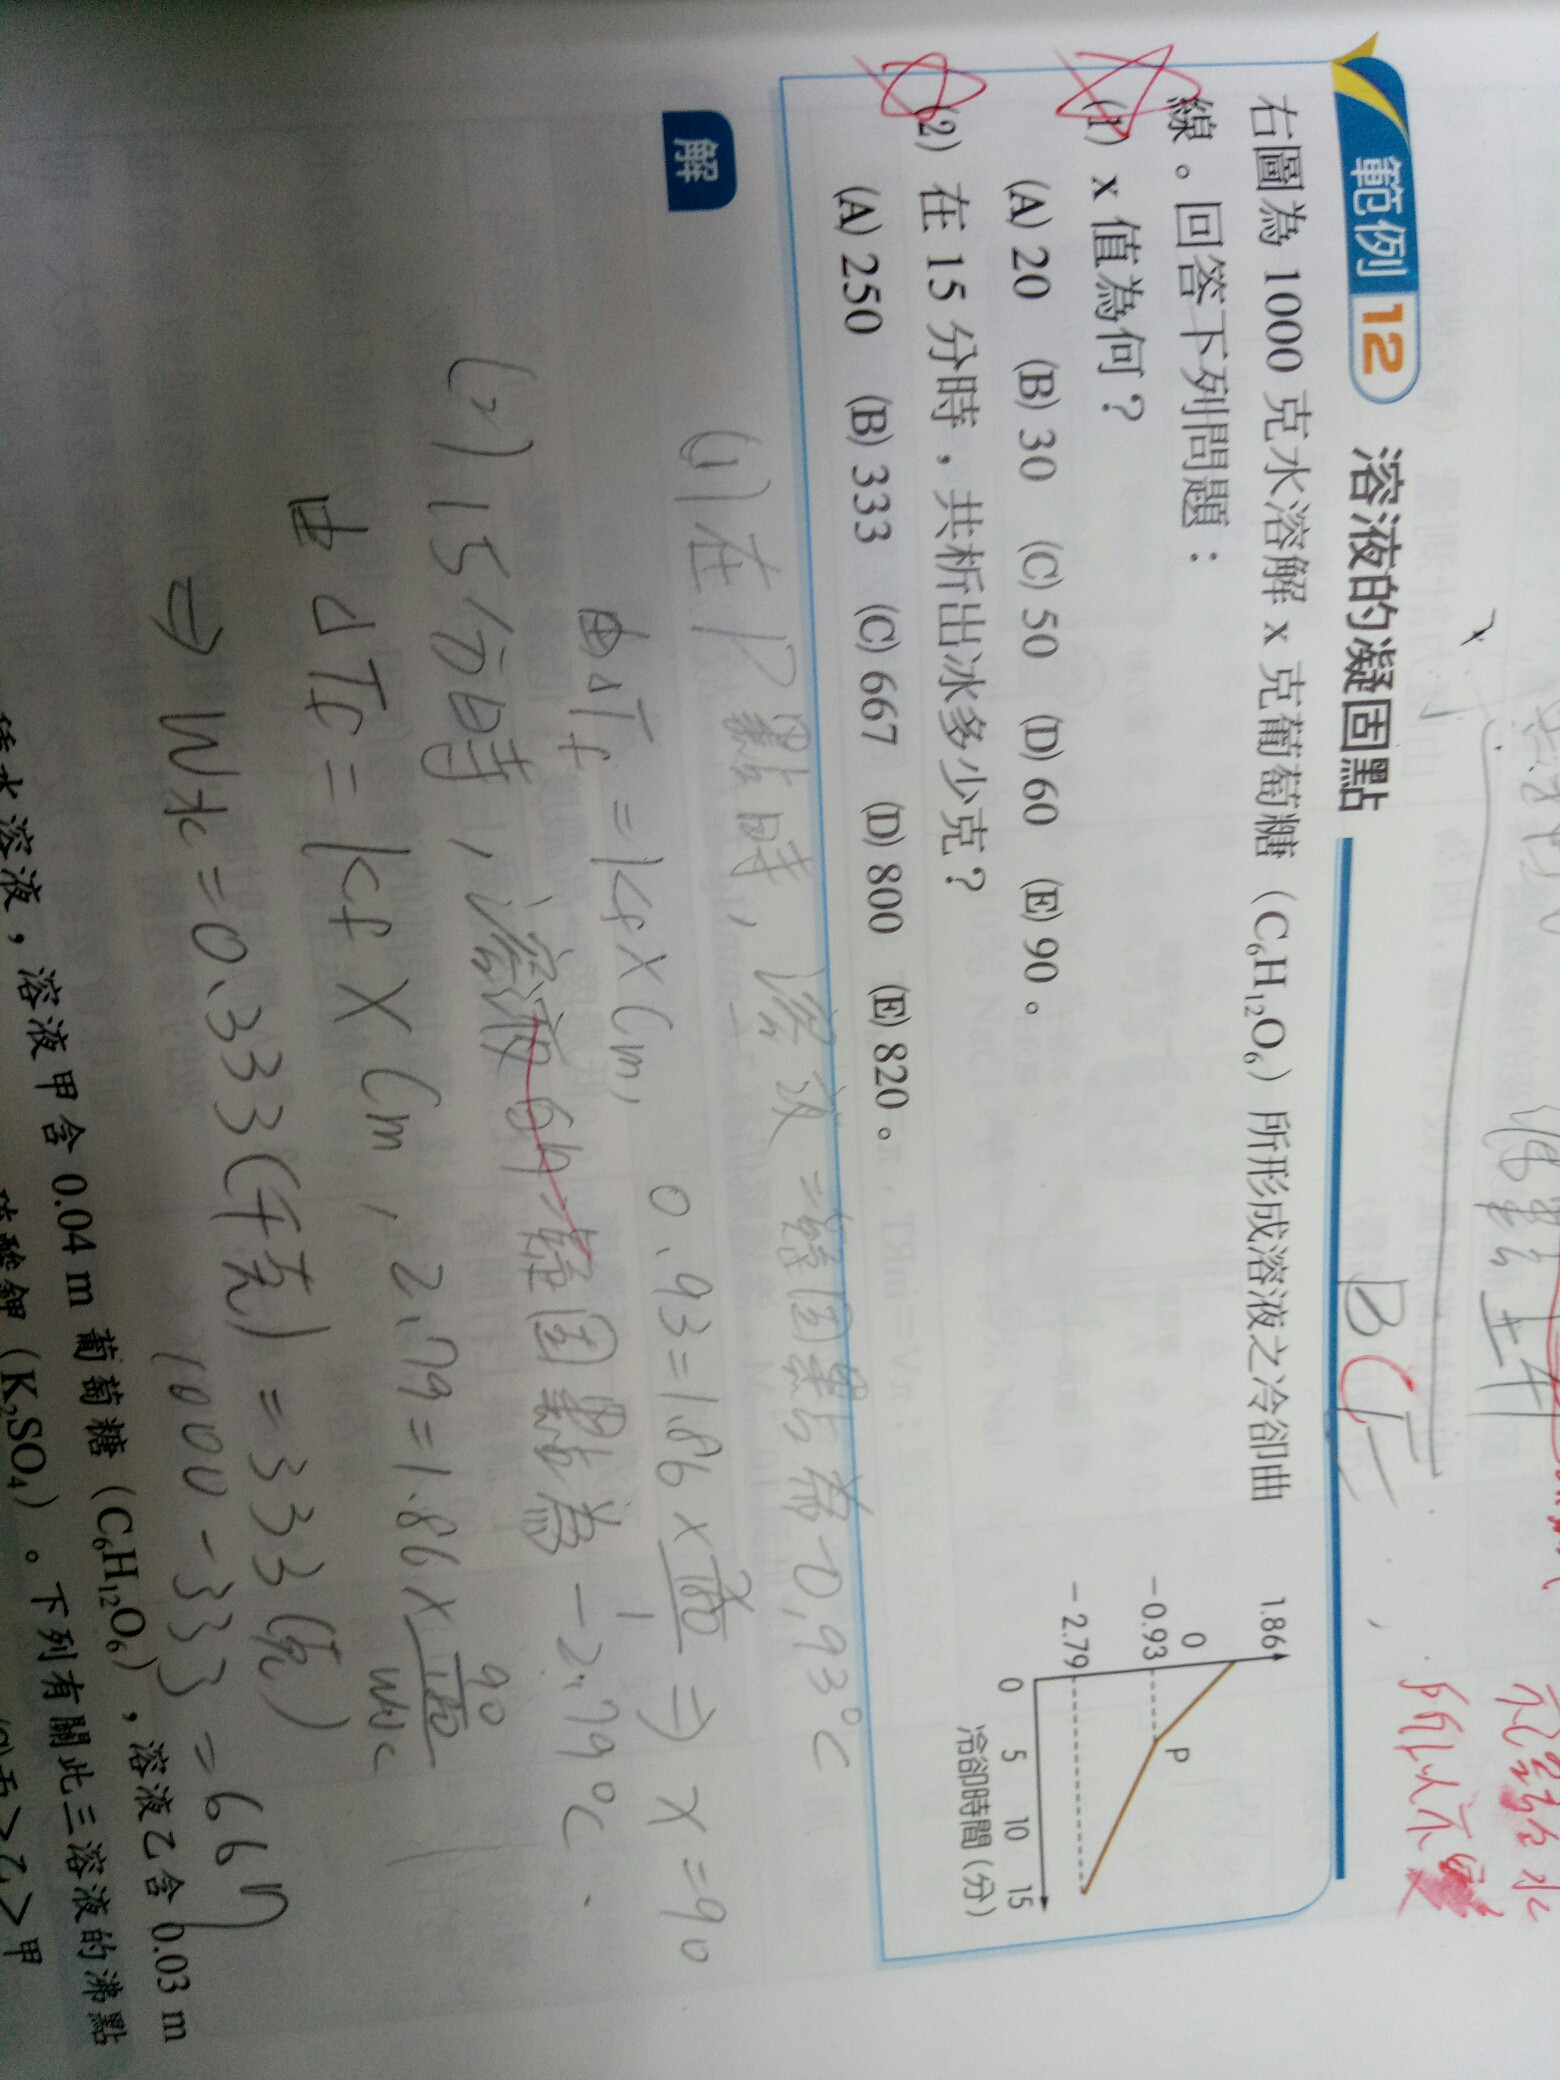 範例 12 溶液的凝固點
右圖為 1000 克水溶解 x 克葡萄糖（C₆H₁₂O₆）所形成溶液之冷卻曲
線。回答下列問題：
(1) x 值為何？
(A) 20 (B) 30 (C) 50 (D) 60 (E) 90。
(2) 在 15 分時，共析出冰多少克？
(A) 250 (B) 333 (C) 667 (D) 800 (E) 820。
1.86
0
-0.93
-2.79
P
0 5 10 15
冷卻時間(分)
解
(1) 在 P 點時，溶液
凝固點為 -0.93°C
由 ΔTf = Kf × Cm,
0.93 = 1.86 × x/180/1 ⇒ x = 90
(2) 15 分時，溶液的凝固點為 -2.79°C
由 ΔTf = Kf × Cm, 2.79 = 1.86 × 90/180/W水
⇒ W水 = 0.333 (千克) = 333 (克)
1000 - 333 = 667
溶液甲含 0.04 m 葡萄糖（C₆H₁₂O₆），溶液乙含 0.03 m
硫酸鉀（K₂SO₄）。下列有關此三溶液的沸點
所以不變